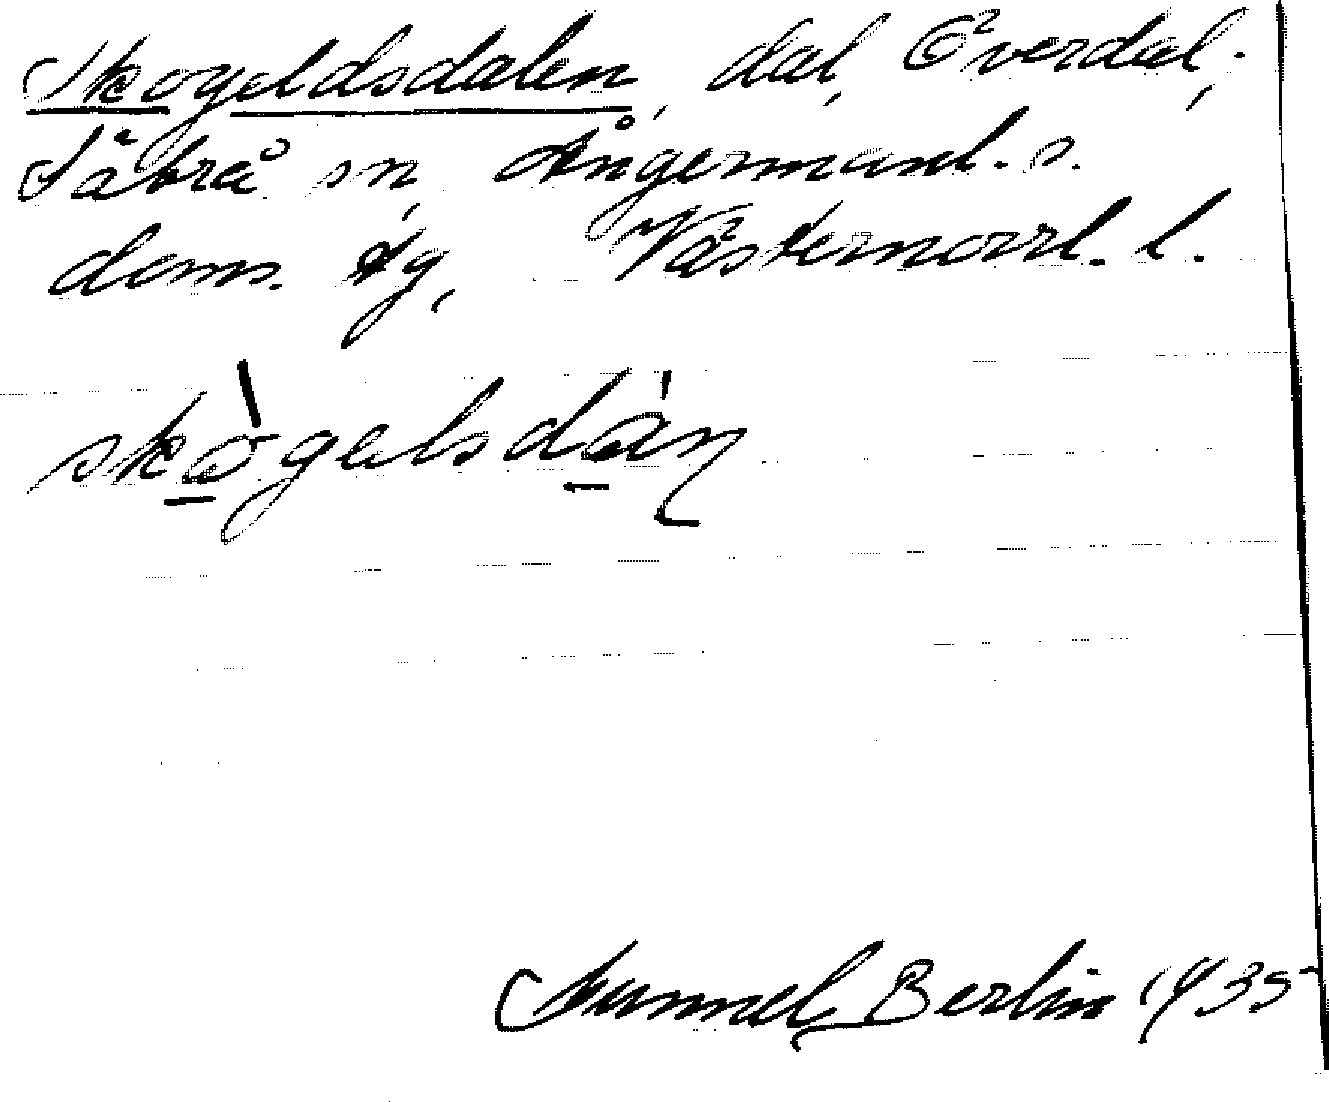 Skogeldsdalen, dal, Överdal,
Säbrå sn, Ångermanl. s.
doms. Åg, Västernorrl. l.
skògelsdán
Gunnel Berlin 1935